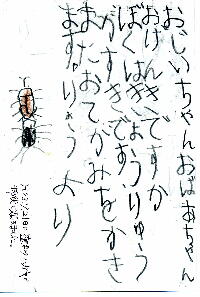 おじいちゃんおばあちゃん
おげんきですか
ぼくはきょうりゅう
がすきです。
またおてがみをかき
ます。りょうより